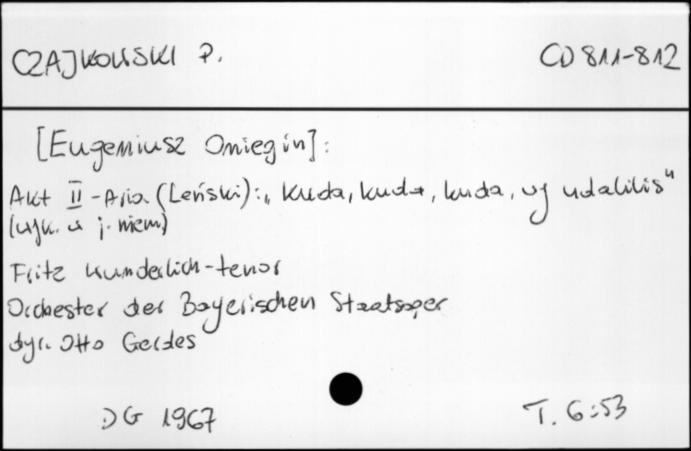 CZAJKOWSKI P.
CD 811-812
[Eugeniusz Oniegin]:
Akt II - Aria (Leński): „Kuda, kuda, kuda, wy udalilis"
(wyk. w j. niem)
Fritz Wunderlich - tenor
Orchester der Bayerischen Staatsoper
dyr. Otto Gerdes
DG 1967
T. 6:53